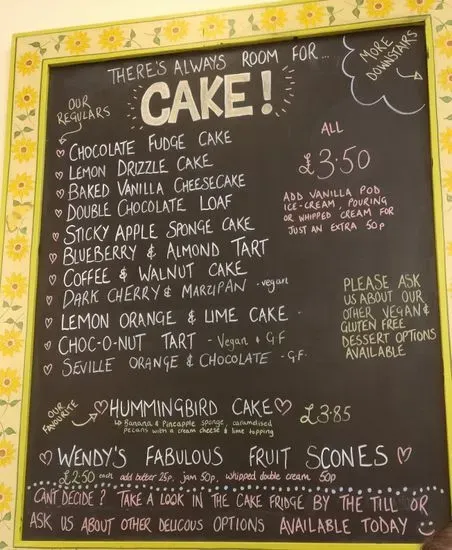 THERE'S ALWAYS ROOM FOR...
CAKE!
MORE
DOWNSTAIRS
OUR
REGULARS
CHOCOLATE FUDGE CAKE
LEMON DRIZZLE CAKE
BAKED VANILLA CHEESECAKE
DOUBLE CHOCOLATE LOAF
STICKY APPLE SPONGE CAKE
BLUEBERRY & ALMOND TART
COFFEE & WALNUT CAKE
DARK CHERRY & MARZIPAN - vegan
LEMON ORANGE & LIME CAKE -
CHOC-O-NUT TART - Vegan + GF
SEVILLE ORANGE & CHOCOLATE - GF.
ALL
£3.50
ADD VANILLA POD
ICE-CREAM, POURING
OR WHIPPED CREAM FOR
JUST AN EXTRA 50p
PLEASE ASK
US ABOUT OUR
OTHER VEGAN &
GLUTEN FREE
DESSERT OPTIONS
AVAILABLE
OUR
FAVOURITE
HUMMINGBIRD CAKE £3.85
Banana & Pineapple sponge, caramelised
pecans with a cream cheese & lime topping
WENDY'S FABULOUS FRUIT SCONES
£2.50 each add butter 25p, jam 50p, whipped double cream 50p
CAN'T DECIDE? TAKE A LOOK IN THE CAKE FRIDGE BY THE TILL OR
ASK US ABOUT OTHER DELICOUS OPTIONS AVAILABLE TODAY